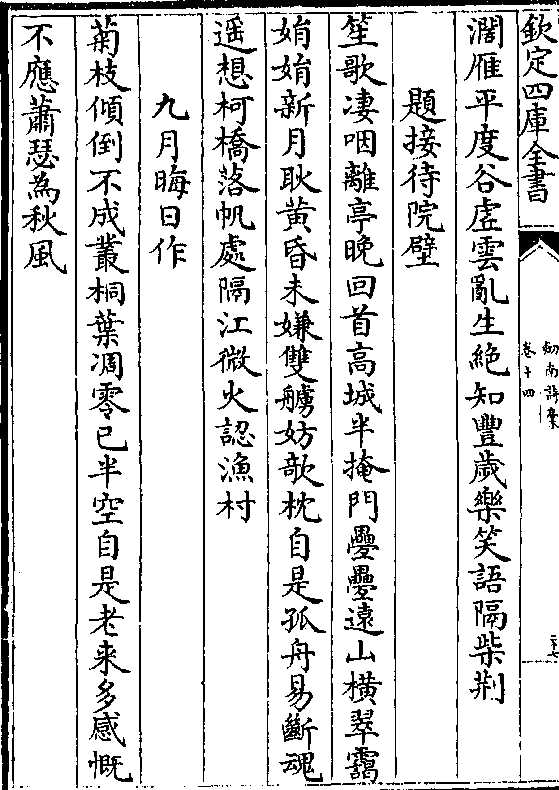 欽定四庫全書
劍南詩稾
卷十四
二十七
濶雁平度谷虛雲亂生絶知豐歲樂笑語隔柴荆
題接待院壁
笙歌凄咽離亭晚回首高城半掩門疊疊遠山橫翠靄
娟娟新月耿黃昏未嫌雙艣妨欹枕自是孤舟易斷魂
遥想柯橋落帆處隔江微火認漁村
九月晦日作
菊枝傾倒不成叢桐葉凋零已半空自是老来多感慨
不應蕭瑟為秋風